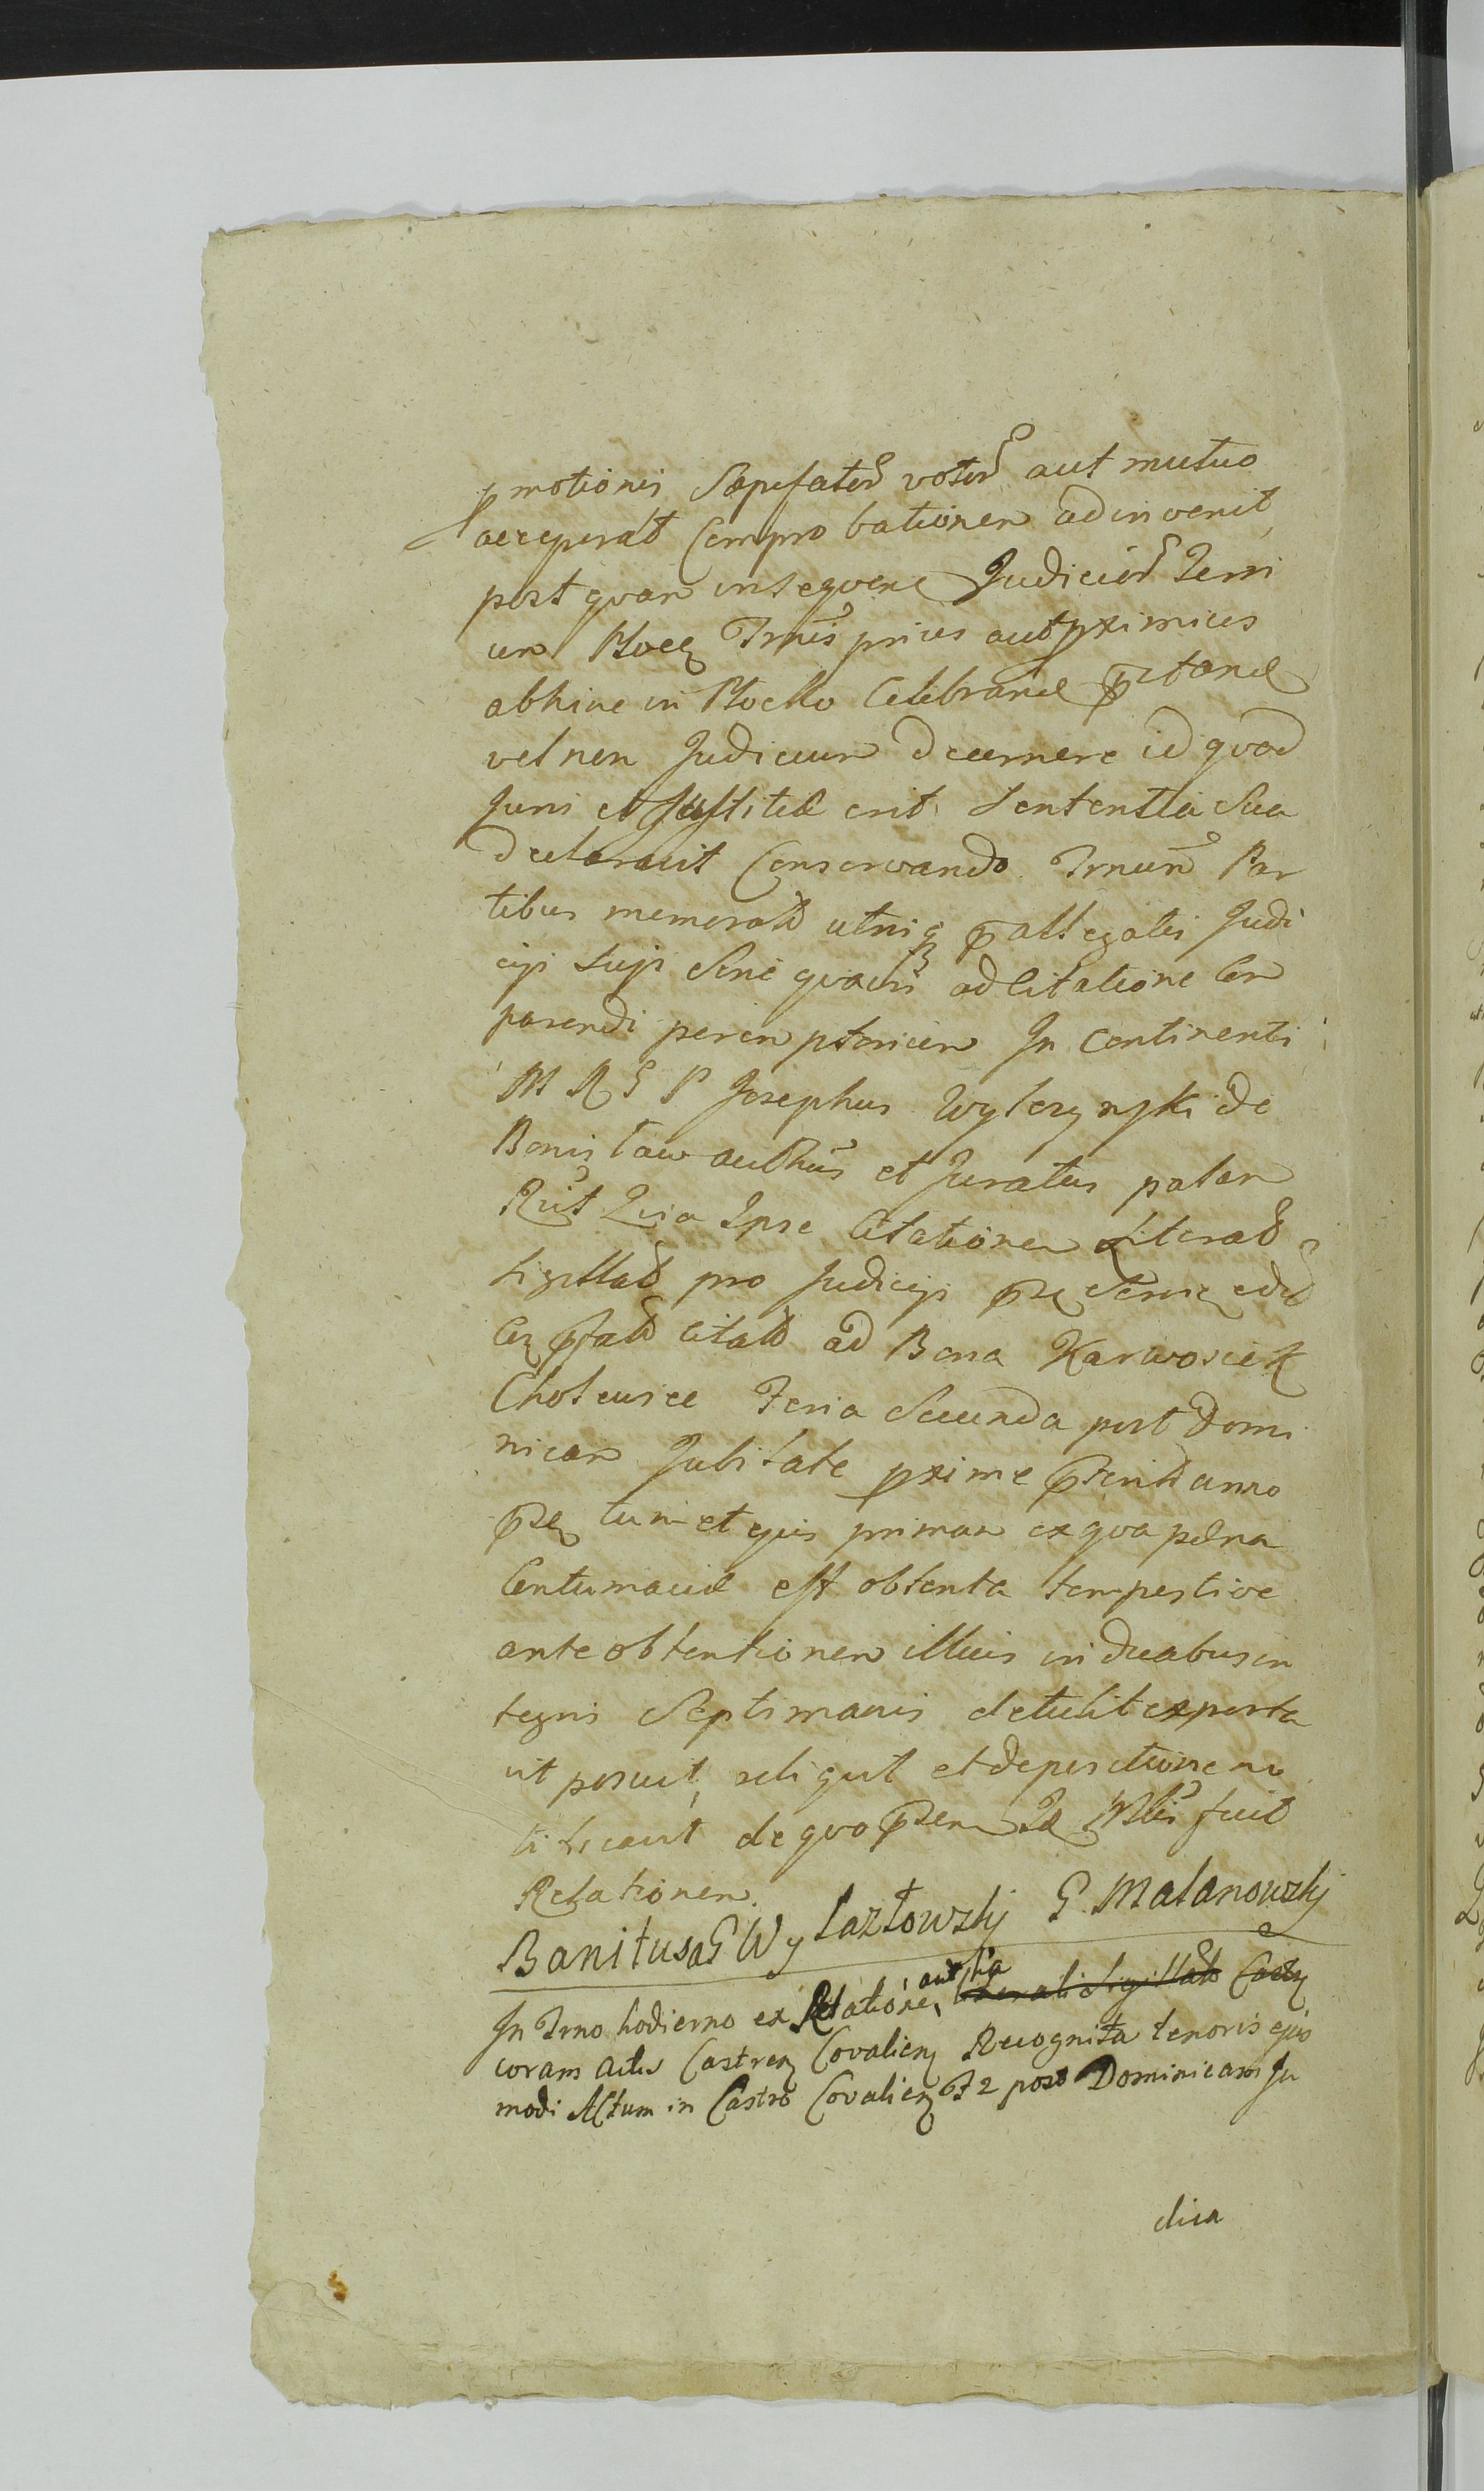 motionis Sæpefator votor aut mutuo
acceperat Comprobationem adinvenit
postquam in sequen Judicior Terri
um Ploceñ Trnis prius aut pximius
abhinc in Plocko Celebrand
vel non Judicium decernere id quod
Juris et Justitiæ erit Sententia Sua
declaravit Conservando Trnum Par
tibus memorat utrisq allegatis Judi
cijs Sine quavis adCitatione Com
parendi peremptorium In Continenti
M R G P Josephus Wylczynski de
Bonisław authus et Juratus palam
Rūt Quia Ipse Citationem Literat
Sigillat pro Judicijs
citato ad Bona Karwosiek
Cholewice Feria Secunda post Domi
nicam Jubilate pxime anno
tum et ejus primam ex qva pœna
Contumaciæ est obtenta tempestive
ante obtentionem illius in duabus in
tegris Septimanis detulit exporta
vit posuit, reliquit et de positione no
tificavit de quo fecit
Relationem.
Banitus G Wy Lazłowskj G. Malanowskj
In Trno hodierno ex Relatione authā
coram actis Castreñ Covalieñ Recognita tenoris ejus
modi Actum in Castro Covalieñ F 2 post Dominicam Ju
dica